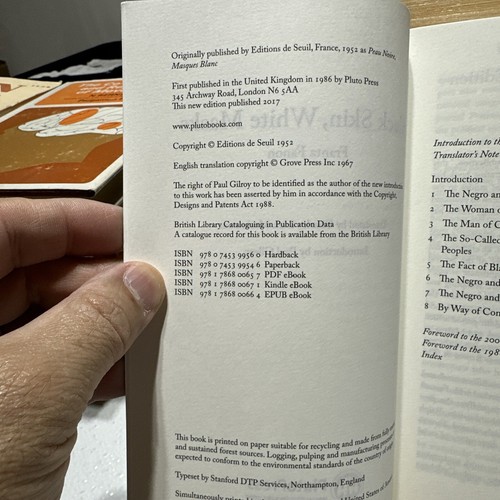 Originally published by Editions de Seuil, France, 1952 as Peau Noire,
Masques Blanc
First published in the United Kingdom in 1986 by Pluto Press
345 Archway Road, London N6 5AA
This new edition published 2017
www.plutobooks.com
Copyright © Editions de Seuil 1952
English translation copyright © Grove Press Inc 1967
The right of Paul Gilroy to be identified as the author of the new introduction
to this work has been asserted by him in accordance with the Copyright,
Designs and Patents Act 1988.
British Library Cataloguing in Publication Data
A catalogue record for this book is available from the British Library
ISBN 978 0 7453 9956 0 Hardback
ISBN 978 0 7453 9954 6 Paperback
ISBN 978 1 7868 0065 7 PDF eBook
ISBN 978 1 7868 0067 1 Kindle eBook
ISBN 978 1 7868 0066 4 EPUB eBook
This book is printed on paper suitable for recycling and made from fully
and sustained forest sources. Logging, pulping and manufacturing
expected to conform to the environmental standards of the country of
Typeset by Stanford DTP Services, Northampton, England
Simultaneously United States of
Introduction to
Translator's Note
Introduction
1 The Negro an
2 The Woman o
3 The Man of C
4 The So-Called
Peoples
5 The Fact of Bl
6 The Negro and
7 The Negro and
8 By Way of Con
Foreword to the 200
Foreword to the 198
Index